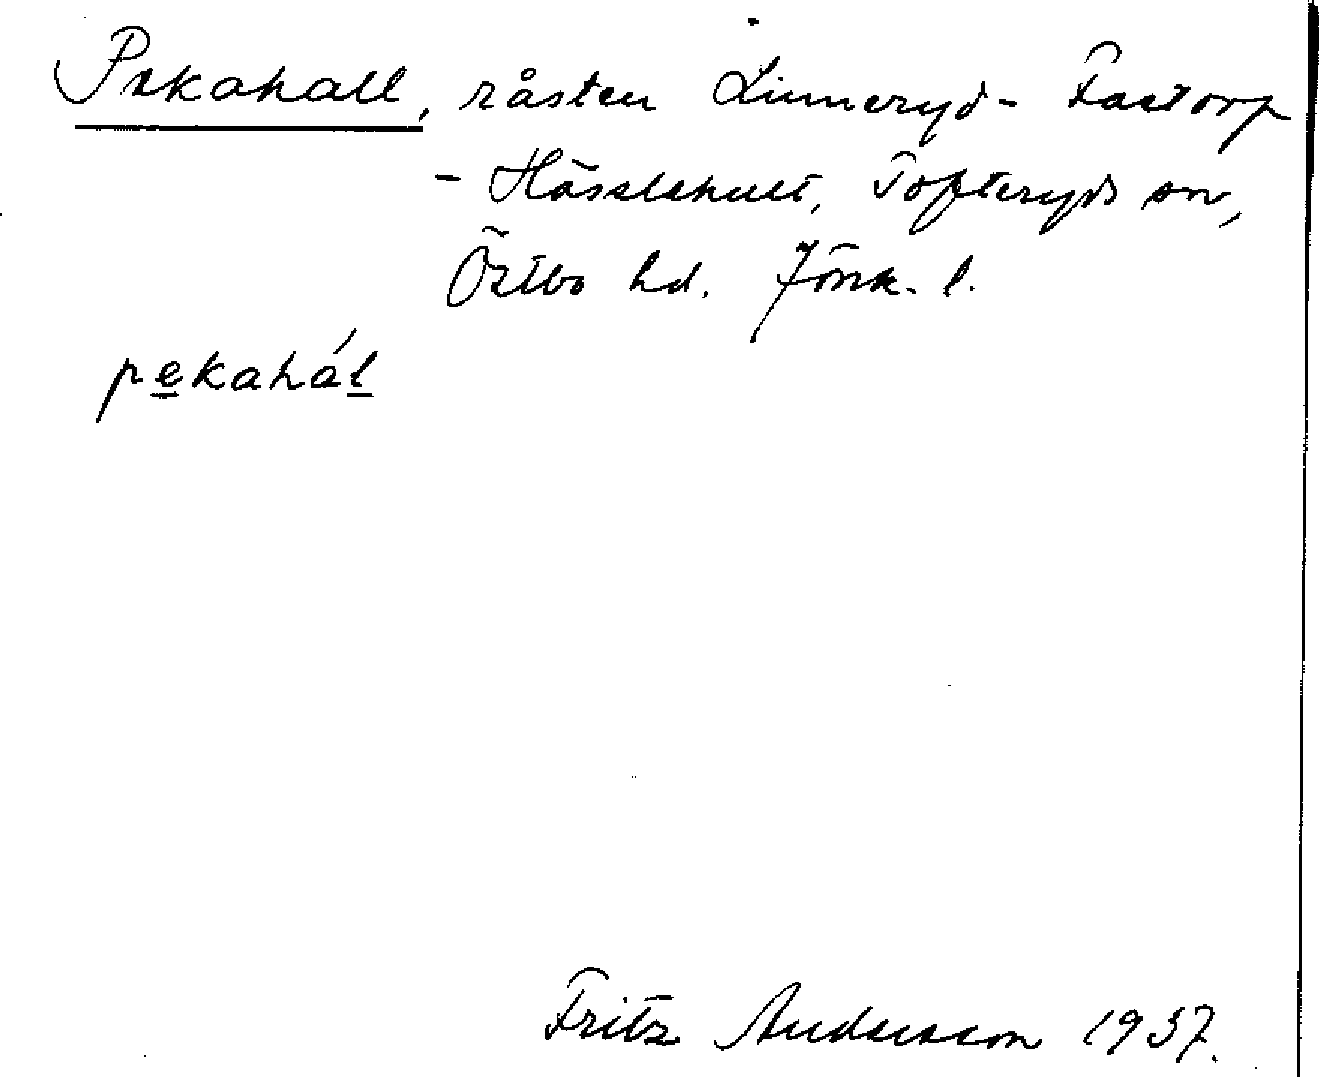 Pekahall, råsten Linneryd - Fastorp
- Hässlehult, Tofteryds sn,
Östbo hd. Jönk. l.
pekahál
Fritz Andersson 1937.